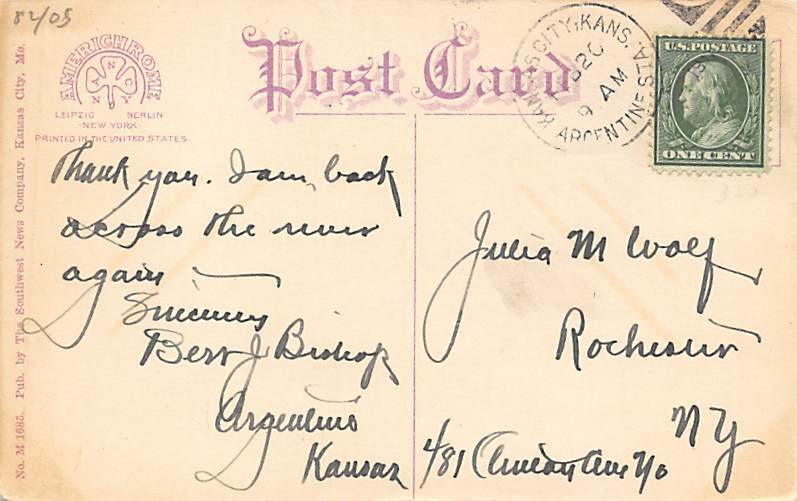 82/05
AMERICHROME
A N C N Y
LEIPZIG BERLIN
NEW YORK
PRINTED IN THE UNITED STATES
Post Card
KANSAS CITY, KANS.
20
9 AM
ARGENTINE STA.
U.S. POSTAGE
ONE CENT
No. M 1685. Pub. by The Southwest News Company, Kansas City, Mo.
Thank you. I am back
across the river
again
Sincerely
Bert J Bishop
Argentine
Kansas
Julia M Wolf
Rochester
NY
481 Clinton Ave No